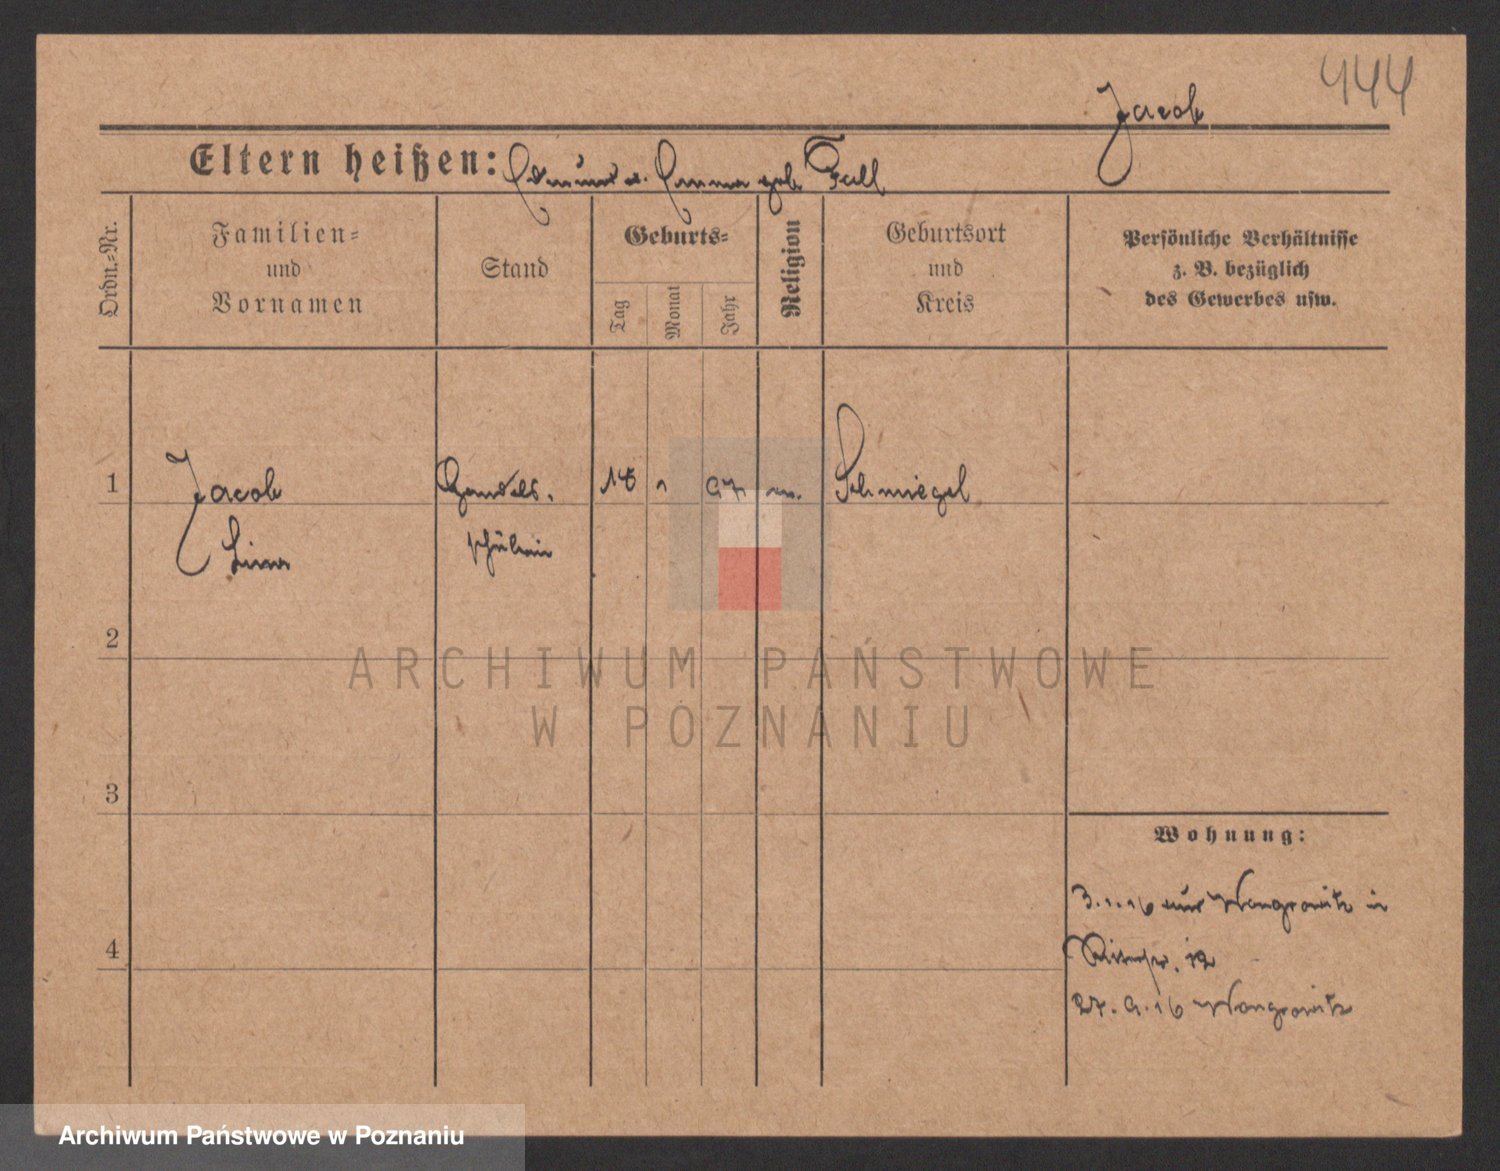 444
Jacob
Eltern heißen: Edmund u. Emma geb. Fall
Ordn.-Nr.
Familien-
und
Vornamen
Stand
Geburts-
Tag
Monat
Jahr
Religion
Geburtsort
und
Kreis
Persönliche Verhältnisse
z. B. bezüglich
des Gewerbes usw.
1 Jacob Handels- 18 1 97 m. Schmiegel
schülerin
2
ARCHIWUM PAŃSTWOWE
W POZNANIU
3
Wohnung:
3.1.16 aus Wongrowitz in
4
12
27.9.16 Wongrowitz
Archiwum Państwowe w Poznaniu